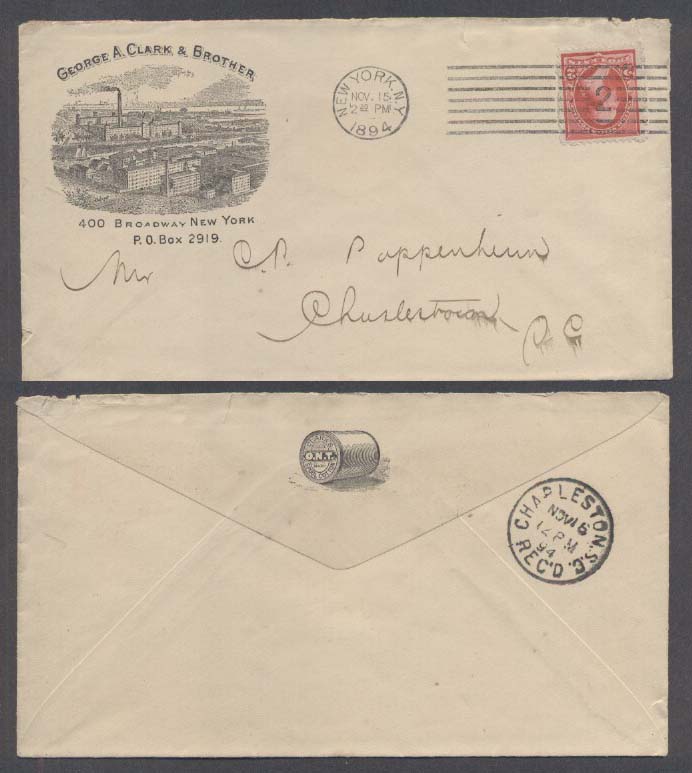 GEORGE A. CLARK & BROTHER,
400 BROADWAY NEW YORK
P.O. Box 2919.
NEW YORK, N.Y.
NOV. 15
2 PM
1894
2
Mr C.P. Poppenheim
Charleston
S C
CLARK'S
O.N.T.
SPOOL COTTON
CHARLESTON, S.C.
NOV 16
12 PM
94
REC'D.